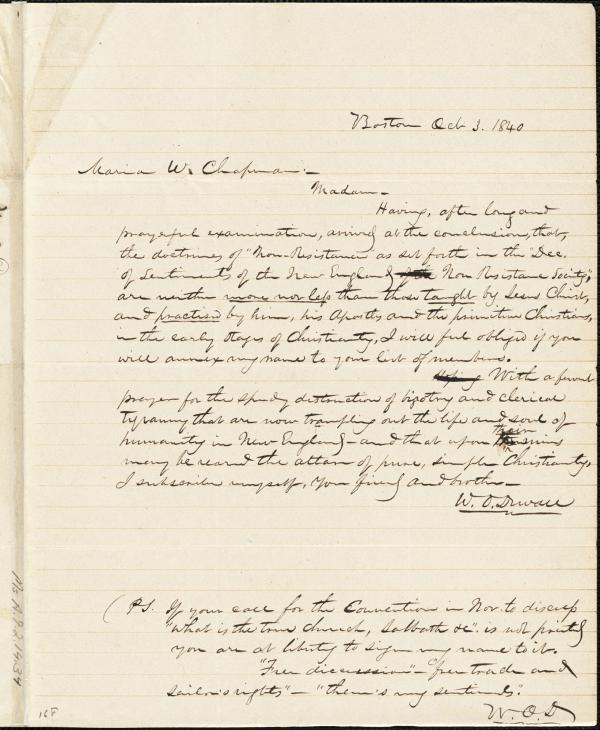 Boston Oct 3. 1840
Maria W. Chapman:-
Madam-
Having, after long and
prayerful examination, arrived at the conclusions, that,
the doctrines of "Non-Resistance" as set forth in the "Dec.
of Sentiments of the New England Non Resistance Society",
are neither more nor less than those taught by Jesus Christ,
and practised by him, his Apostles and the primitive Christians,
in the early stages of Christianity, I will feel obliged if you
will annex my name to your list of members.
Hoping With a fervent
prayer for the speedy destruction of bigotry and clerical
tyranny that are now trampling out the life and soul of
humanity in New England - and that upon their ruins
may be reared the altars of pure, simple Christianity,
I subscribe myself, your friend and brother-
W. O. Duvall
(P.S. If your call for the Convention in Nov. to discuss
"What is the true church, Sabbath &c". is not printed
you are at liberty to sign my name to it.
"Free discussion" - "free trade and
sailor's rights" - "them's my sentiments".
W. O. D
Ms.A.9.2.14.34